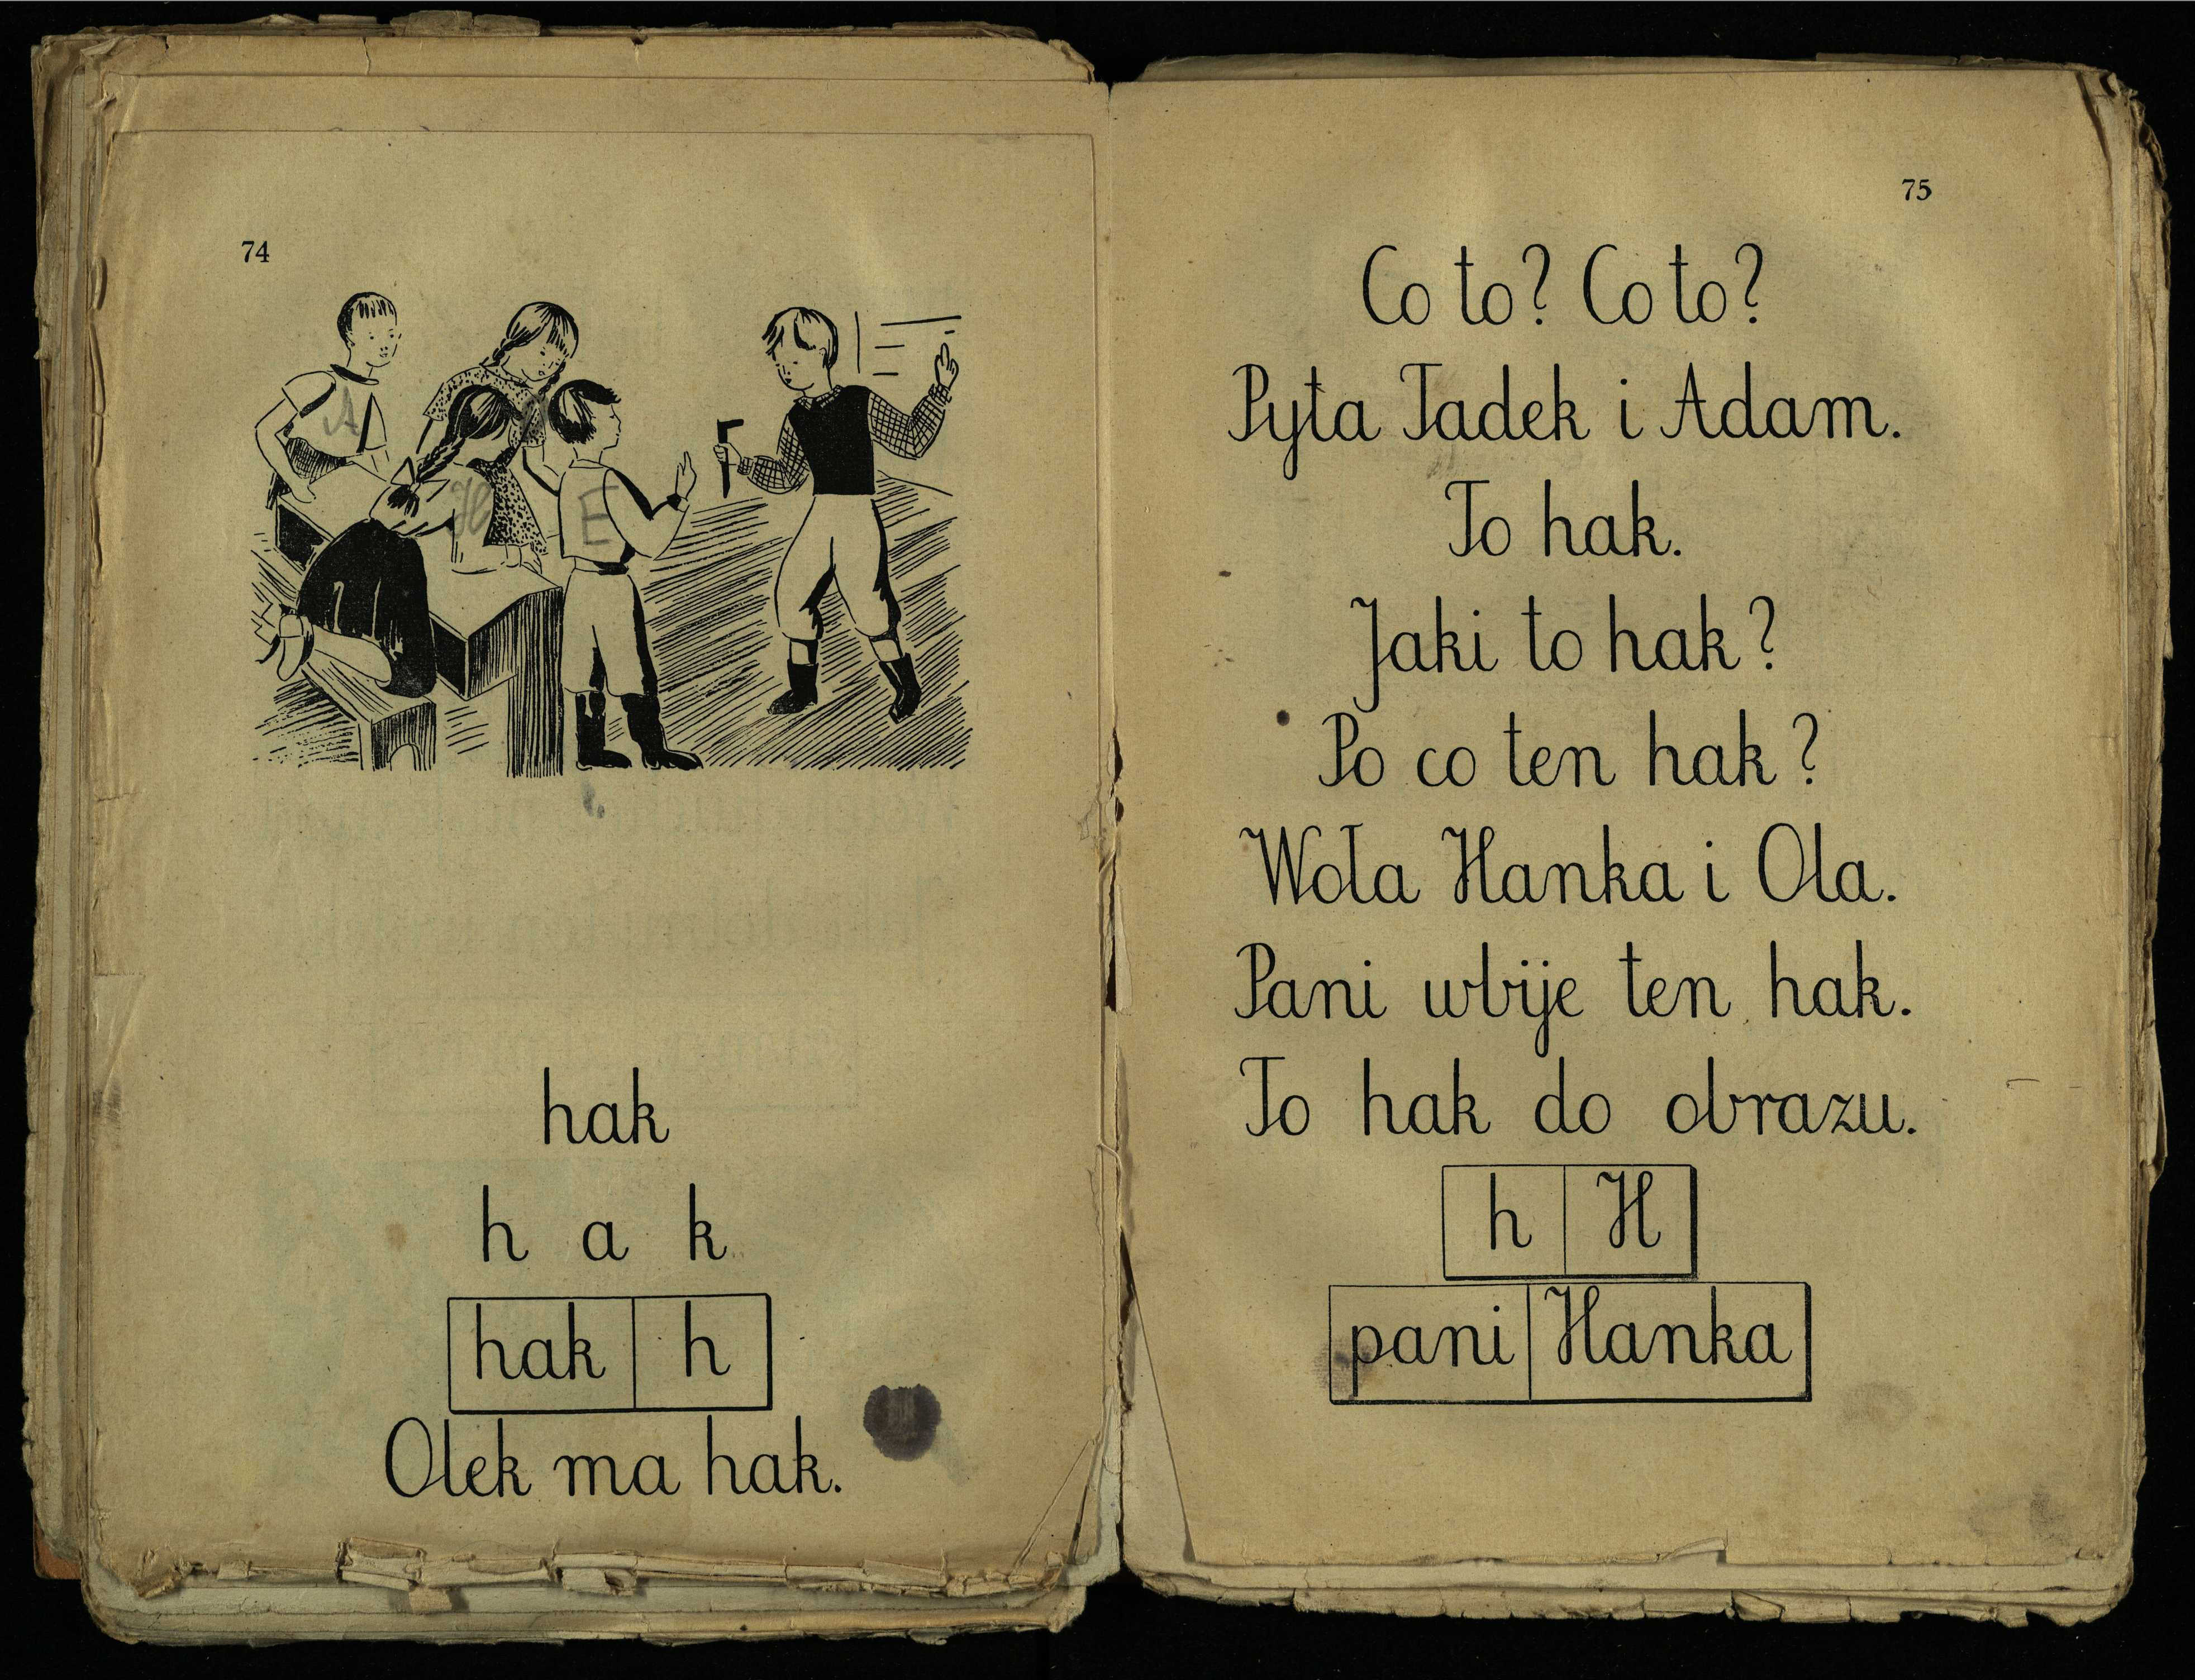 74
A
H
E
hak
h a k
hak h
Olek ma hak.
75
Co to? Co to?
Pyta Tadek i Adam.
To hak.
Jaki to hak?
Po co ten hak?
Woła Hanka i Ola.
Pani wbije ten hak.
To hak do obrazu.
h H
pani Hanka